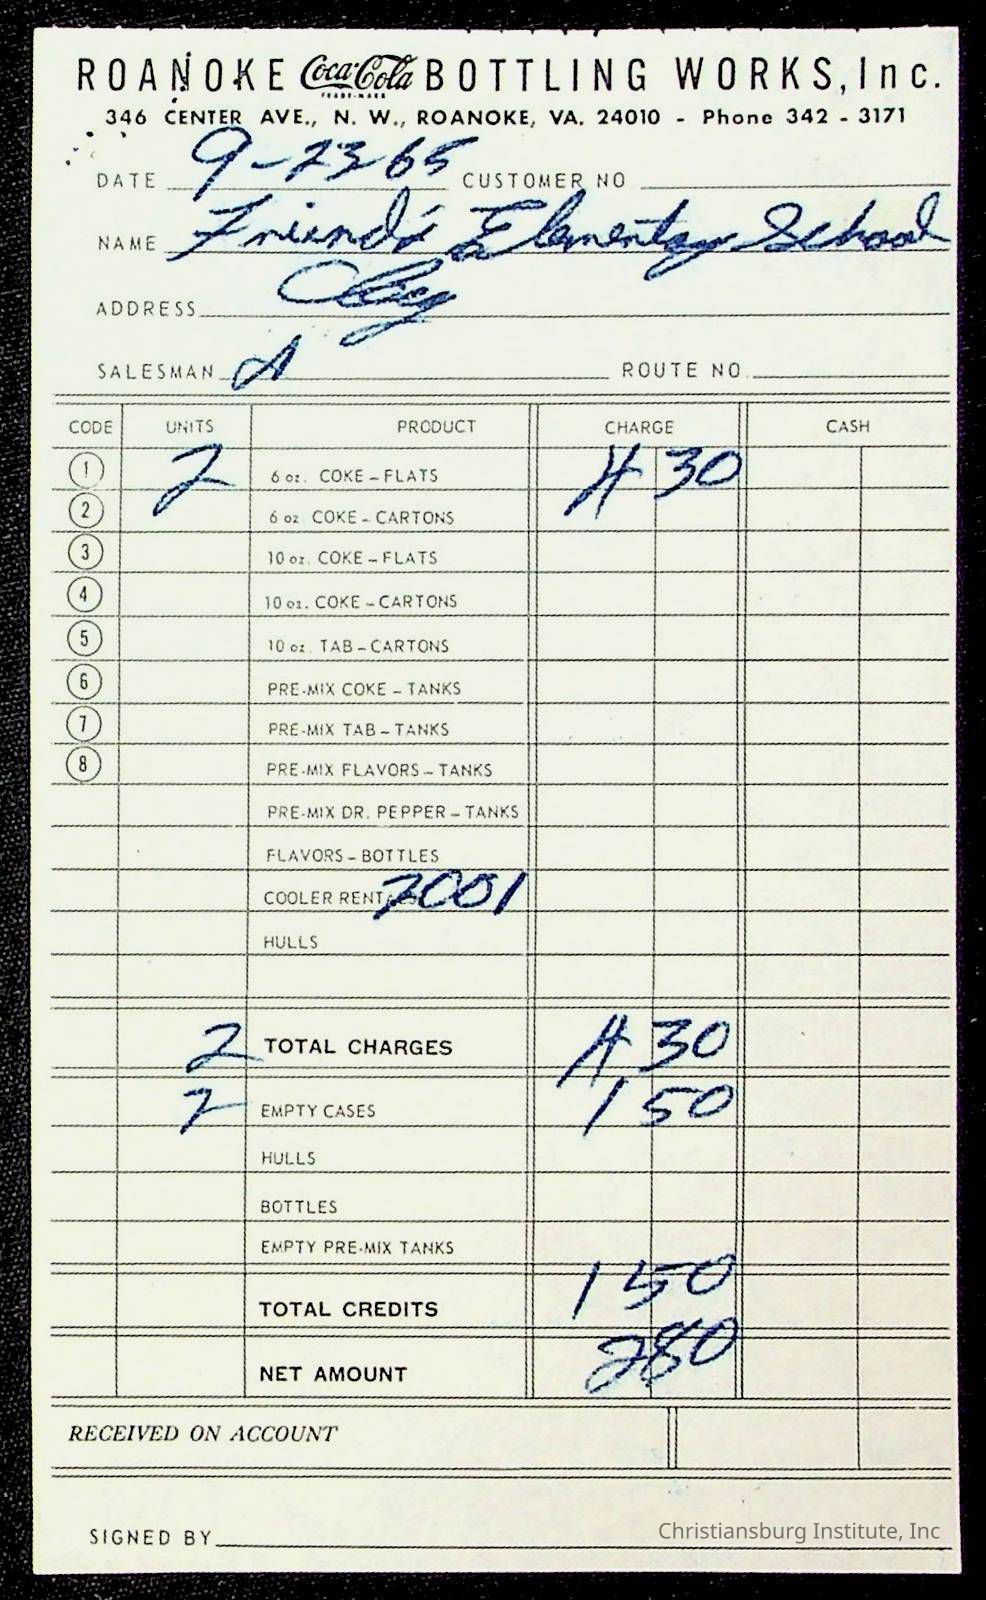 ROANOKE Coca-Cola BOTTLING WORKS, Inc.
TRADE-MARK
346 CENTER AVE., N. W., ROANOKE, VA. 24010 - Phone 342 - 3171
DATE 9-23 65 CUSTOMER NO
NAME Friend's Elementary School
ADDRESS
SALESMAN ROUTE NO.
CODE UNITS PRODUCT CHARGE CASH
1 2 6 oz. COKE – FLATS 4 30
2 6 oz. COKE – CARTONS
3 10 oz. COKE – FLATS
4 10 oz. COKE – CARTONS
5 10 oz. TAB – CARTONS
6 PRE-MIX COKE – TANKS
7 PRE-MIX TAB – TANKS
8 PRE-MIX FLAVORS – TANKS
PRE-MIX DR. PEPPER – TANKS
FLAVORS – BOTTLES
COOLER 2001
HULLS
2 TOTAL CHARGES 4 30
2 EMPTY CASES 1 50
HULLS
BOTTLES
EMPTY PRE-MIX TANKS
TOTAL CREDITS 1 50
NET AMOUNT 2 80
RECEIVED ON ACCOUNT
SIGNED BY
Christiansburg Institute, Inc